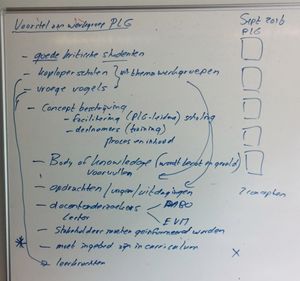 Voorstel van werkgroep PLG
Sept 2016
PLG
- goede kritische studenten
- koploperscholen } uit themawerkgroepen
- vroege vogels
- Concept beschrijving
- facilitering (PLG-leiding) scholing
- deelnemers (training)
proces en inhoud
- Body of knowledge (wordt
voorvullen
- opdrachten / vragen / uitdagingen
- docentonderzoekers
lector
- Stakeholders moeten geïnformeerd worden
- moet ingebed zijn in curriculum
x
- leerbronnen